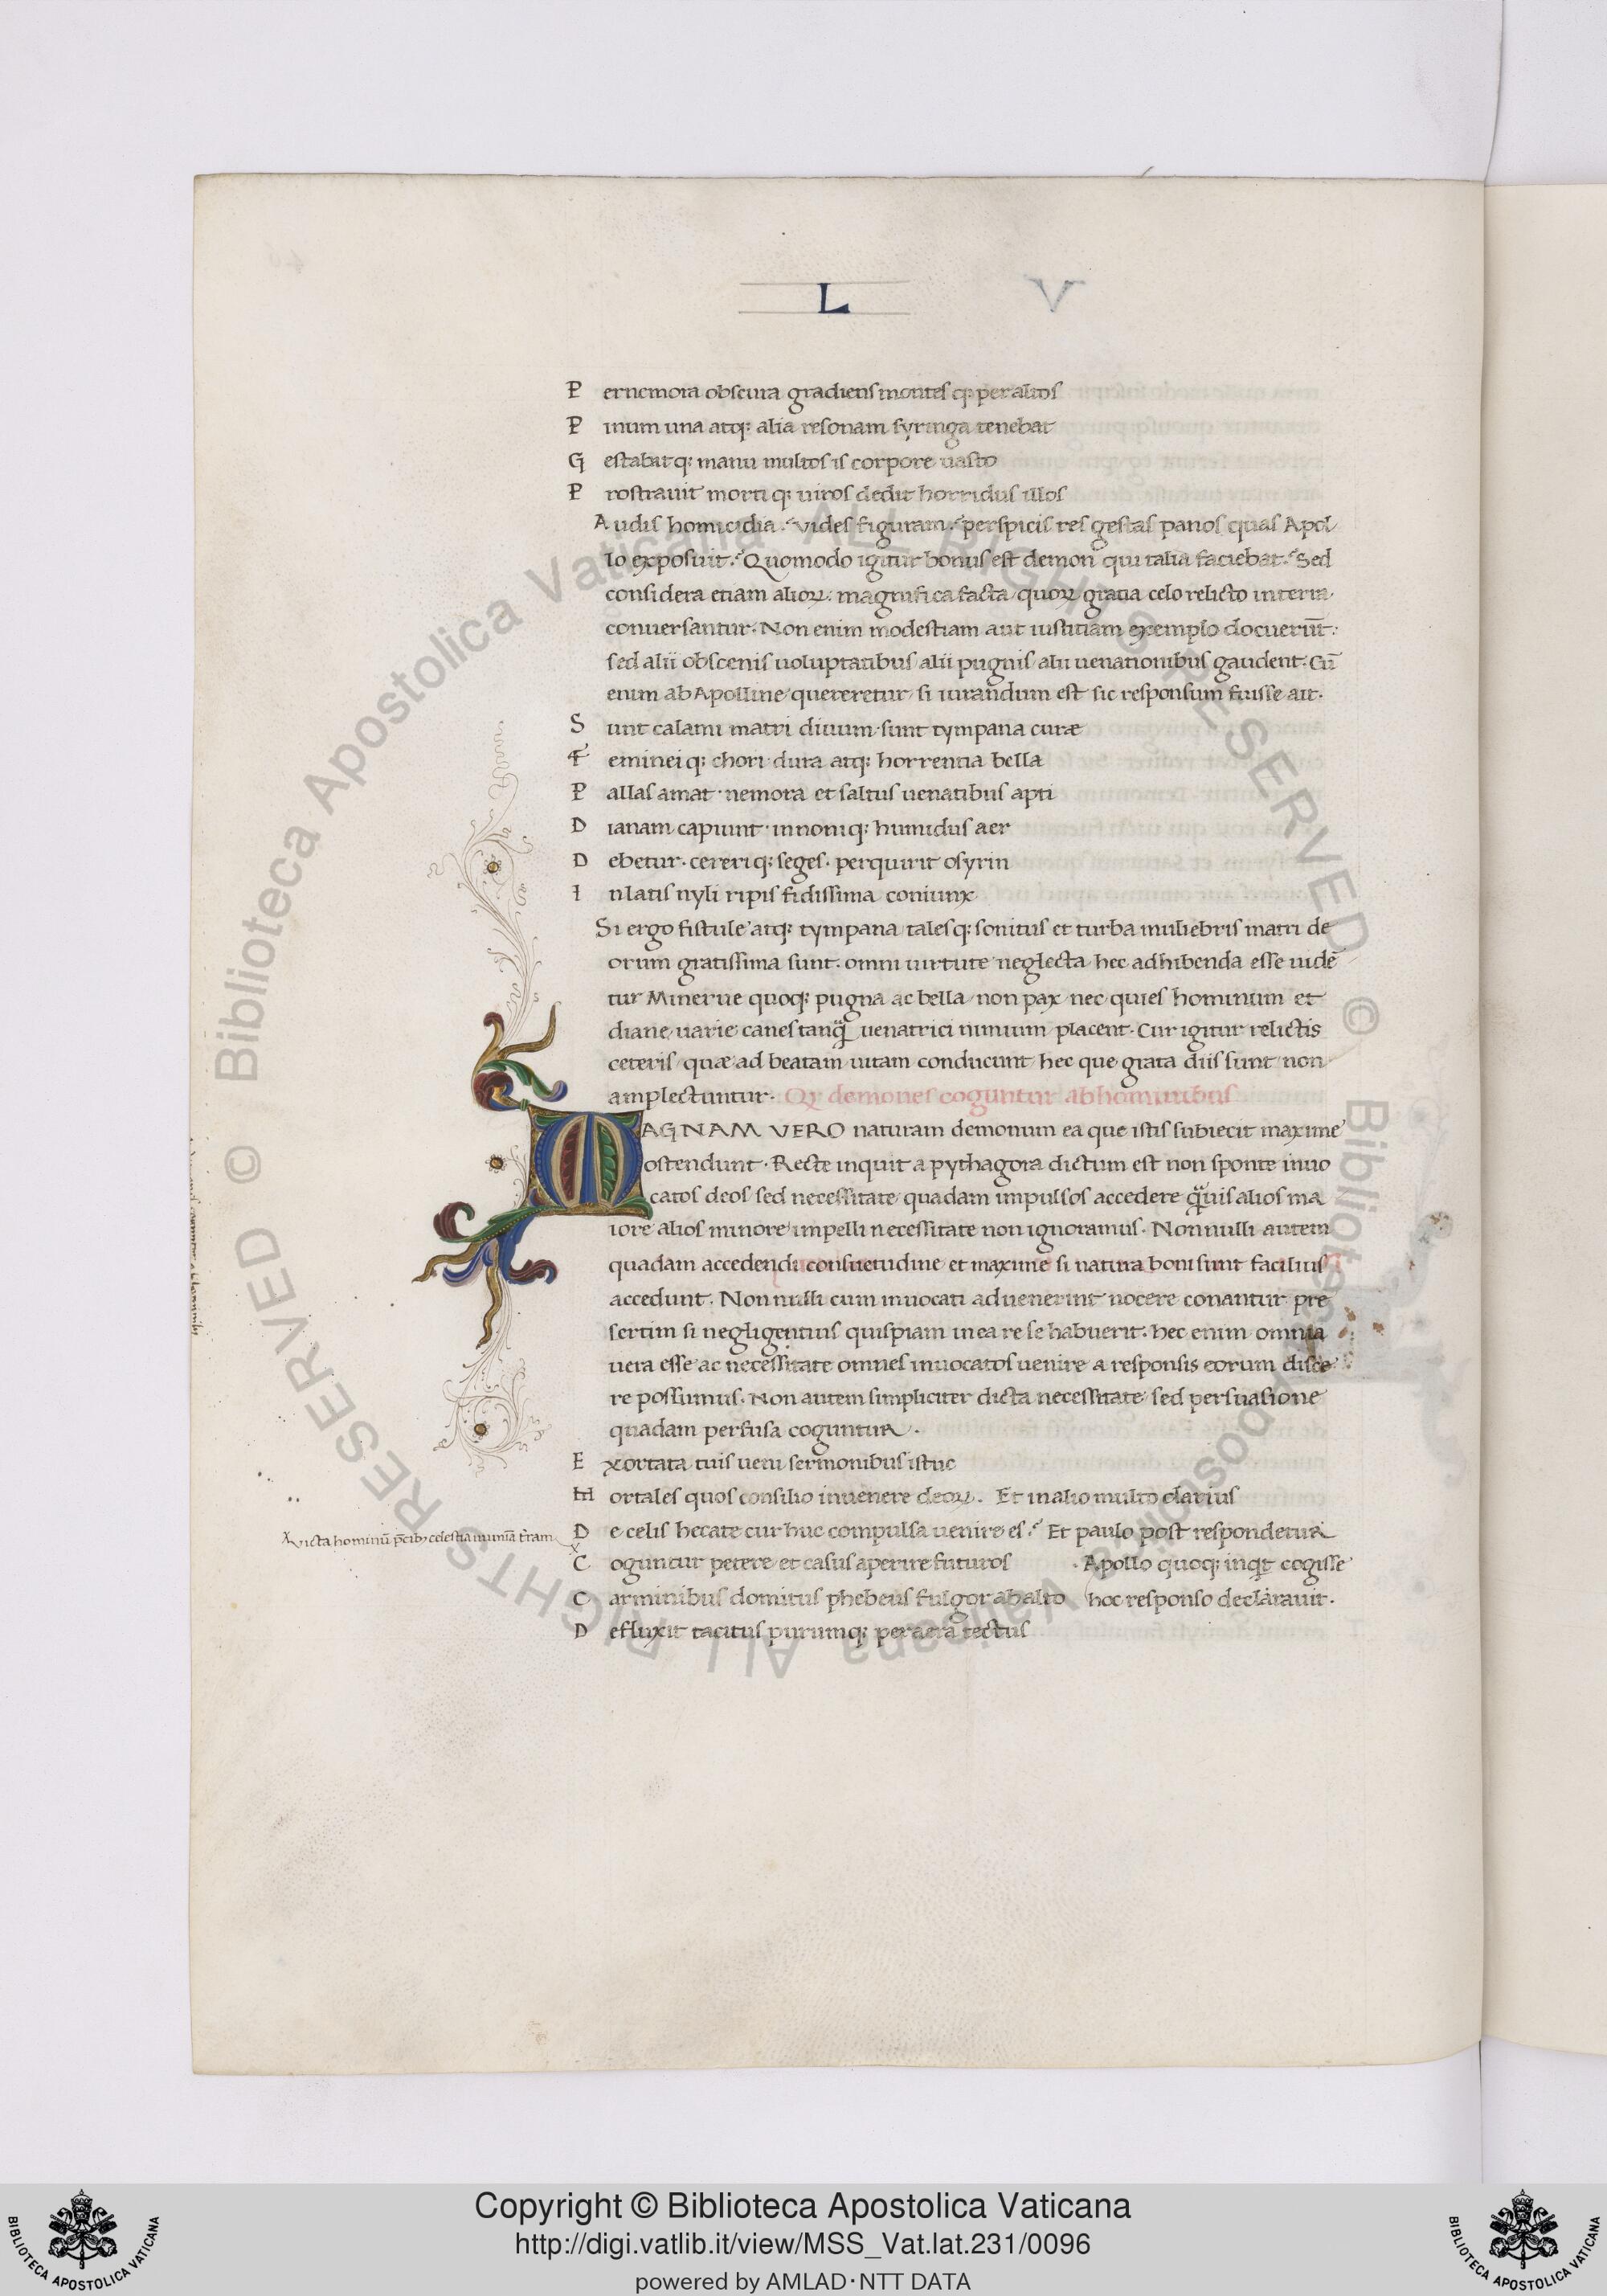 L V
Per nemora obscura gradiens montes q; per altos
Pinum una atq; alia resonam syringa tenebat
Gestabat q; manu multos is corpore uasto
Prostrauit morti q; uiros dedit horridus illos
Audis homicidia. Vides figuram. perspicis res gestas panos quas Apol
lo exposuit. Quomodo igitur bonus est demon qui talia faciebat. Sed
considera etiam alioꝝ magnifica facta quoꝝ gratia celo relicto in terra
conuersantur. Non enim modestiam aut iustitiam exemplo docuerūt:
sed alii obscenis uoluptatibus alii pugnis alii uenationibus gaudent. Cū
enim ab Apolline quereretur si iurandum est sic responsum fuisse ait.
Sunt calami matri diuum. sunt tympana curæ
Feminei q; chori. dura atq; horrentia bella
Pallas amat. nemora et saltus uenatibus apti
Dianam capiunt. iunoni q; humidus aer
Debetur. cereri q; seges. perquirit osyrin
In latis nyli ripis fidissima coniunx
Si ergo fistule atq; tympana tales q; sonitus et turba muliebris matri de
orum gratissima sunt. omni uirtute neglecta hec adhibenda esse uidē
tur Minerue quoq; pugna ac bella non pax nec quies hominum et
diane uarie canes tanq̄ uenatrici nimium placent. Cur igitur relictis
ceteris quæ ad beatam uitam conducunt hec que grata diis sunt non
amplectuntur. Qꝫ demones coguntur ab hominibus
MAGNAM VERO naturam demonum ea que istis subiecit maxime
ostendunt. Recte inquit a pythagora dictum est non sponte inuo
catos deos sed necessitate quadam impulsos accedere q̄uis alios ma
iore alios minore impelli necessitate non ignoramus. Nonnulli autem
quadam accedendi consuetudine et maxime si natura boni sunt facilius
accedunt. Non nulli cum inuocati aduenerint nocere conantur pre
sertim si negligentius quispiam in ea re se habuerit. hec enim omnia
uera esse ac necessitate omnes inuocatos uenire a responsis eorum disce
re possumus. Non autem simpliciter dicta necessitate sed persuasione
quadam perfusa coguntur.
Exortata tuis ueni sermonibus istuc
Mortales quos consilio inuenere deoꝝ. Et in alio multo clarius
De celis hecate cur huc compulsa uenire es. Et paulo post respondetur
victa hominū p̄cibꝫ celestia munia t̄ram
Coguntur petere et casus aperire futuros . Apollo quoq; inqt cogisse
Carminibus domitus phebeus fulgor ab alto hoc responso declarauit.
Defluxit tacitus purumq; per aera tectus
Biblioteca Apostolica Vaticana ALL RIGHTS RESERVED ©
Biblioteca Apostolica Vaticana ALL RIGHTS RESERVED ©
Copyright © Biblioteca Apostolica Vaticana
http://digi.vatlib.it/view/MSS_Vat.lat.231/0096
powered by AMLAD·NTT DATA
BIBLIOTECA APOSTOLICA VATICANA
BIBLIOTECA APOSTOLICA VATICANA